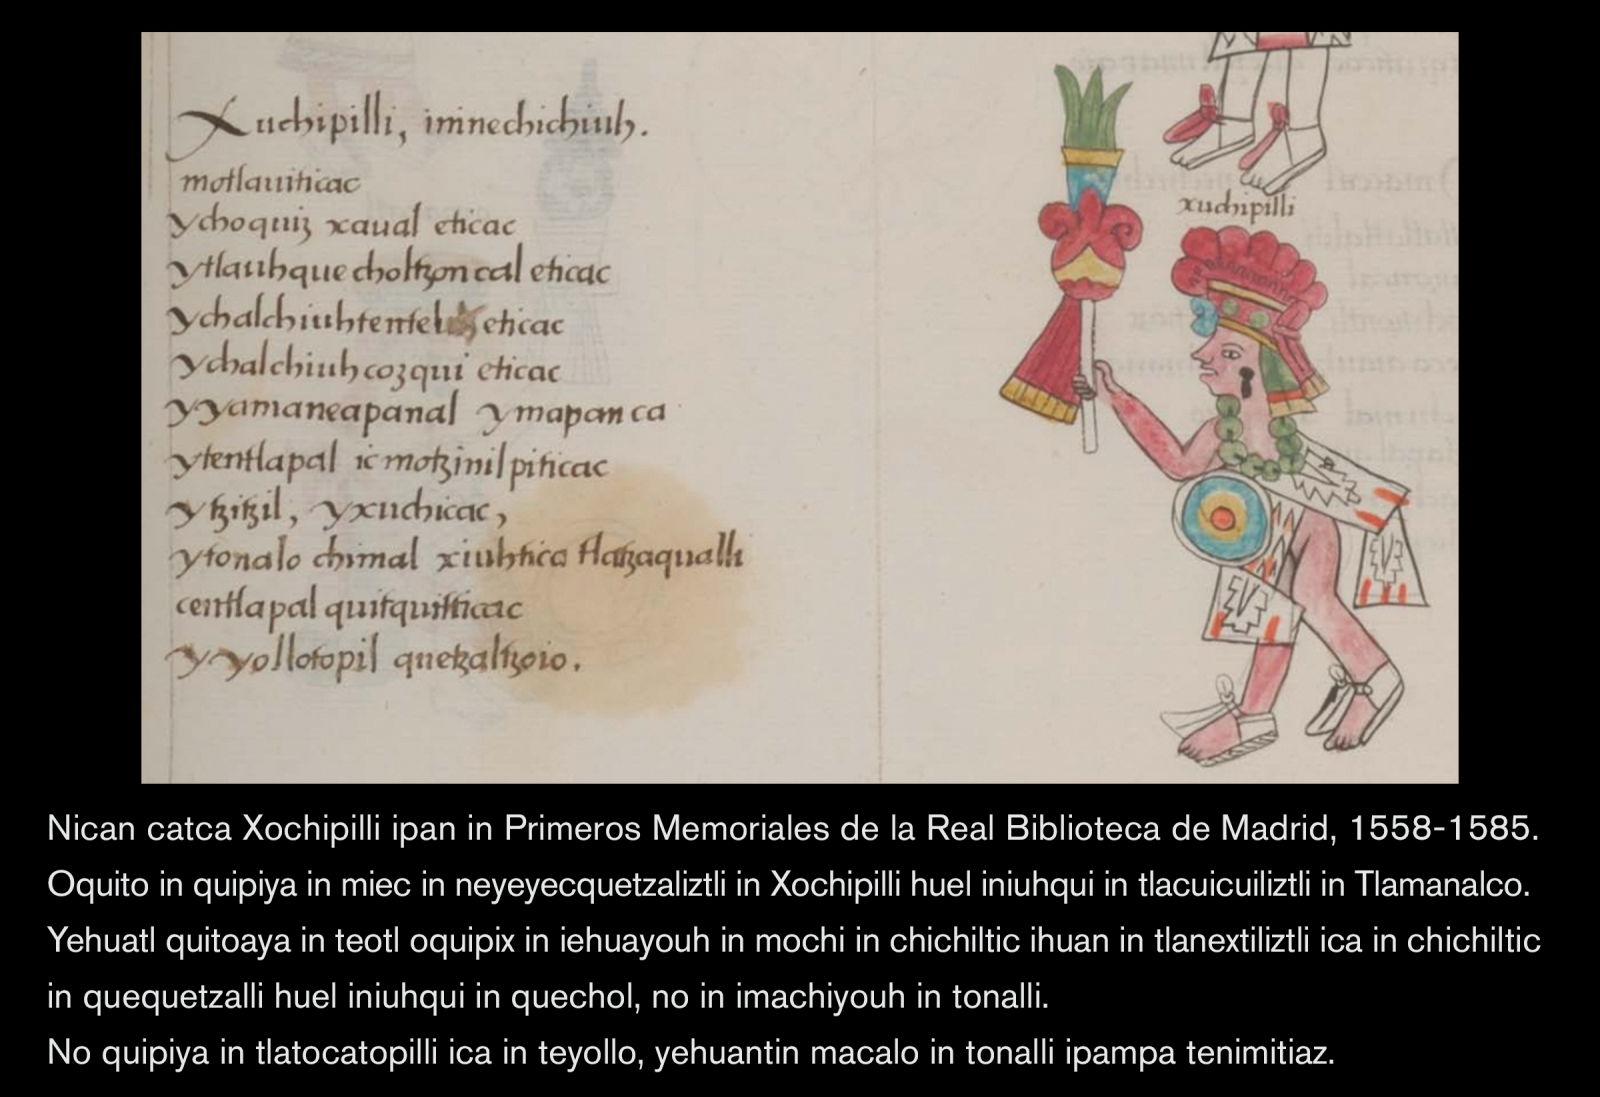 Xuchipilli, iminechichiuh.
motlauiticac
ychoquiz xaual eticac
ytlauhquecholtzoncal eticac
ychalchiuhtentel eticac
ychalchiuhcozqui eticac
yyamaneapanal ymapanca
ytentlapal ic motzinilpiticac
ytzitzil, yxuchicac,
ytonalo chimal xiuhtica tlatzaqualli
centlapal quitquitticac
yyollotopil quetzaltzoio.
xuchipilli
Nican catca Xochipilli ipan in Primeros Memoriales de la Real Biblioteca de Madrid, 1558-1585.
Oquito in quipiya in miec in neyeyecquetzaliztli in Xochipilli huel iniuhqui in tlacuicuiliztli in Tlamanalco.
Yehuatl quitoaya in teotl oquipix in iehuayouh in mochi in chichiltic ihuan in tlanextiliztli ica in chichiltic
in quequetzalli huel iniuhqui in quechol, no in imachiyouh in tonalli.
No quipiya in tlatocatopilli ica in teyollo, yehuantin macalo in tonalli ipampa tenimitiaz.